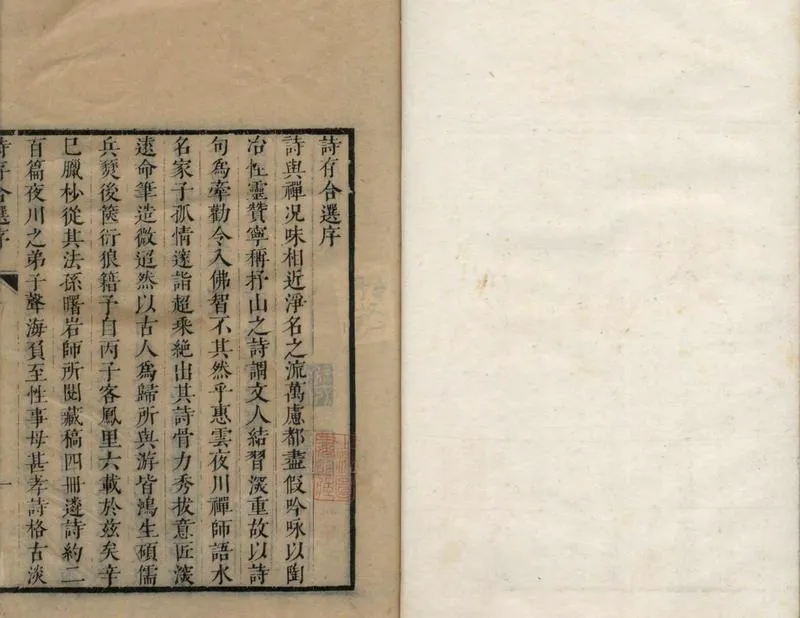 詩存合選序
詩與禪況味相近淨名之流萬慮都盡假吟咏以陶
冶性靈贊寧稱杼山之詩謂文人結習深重故以詩
句為牽勸令入佛智不其然乎惠雲夜川禪師語水
名家子孤情敻詣超乘絶出其詩骨力秀拔意匠深
遠命筆造微迢然以古人為歸所與游皆鴻生碩儒
兵燹後篋衍狼籍予自丙子客鳳里六載於茲矣辛
巳臘杪從其法孫曙岩師所閱藏稿四冊遴詩約二
百篇夜川之弟子聲海負至性事母甚孝詩格古淡
詩存合選序
一